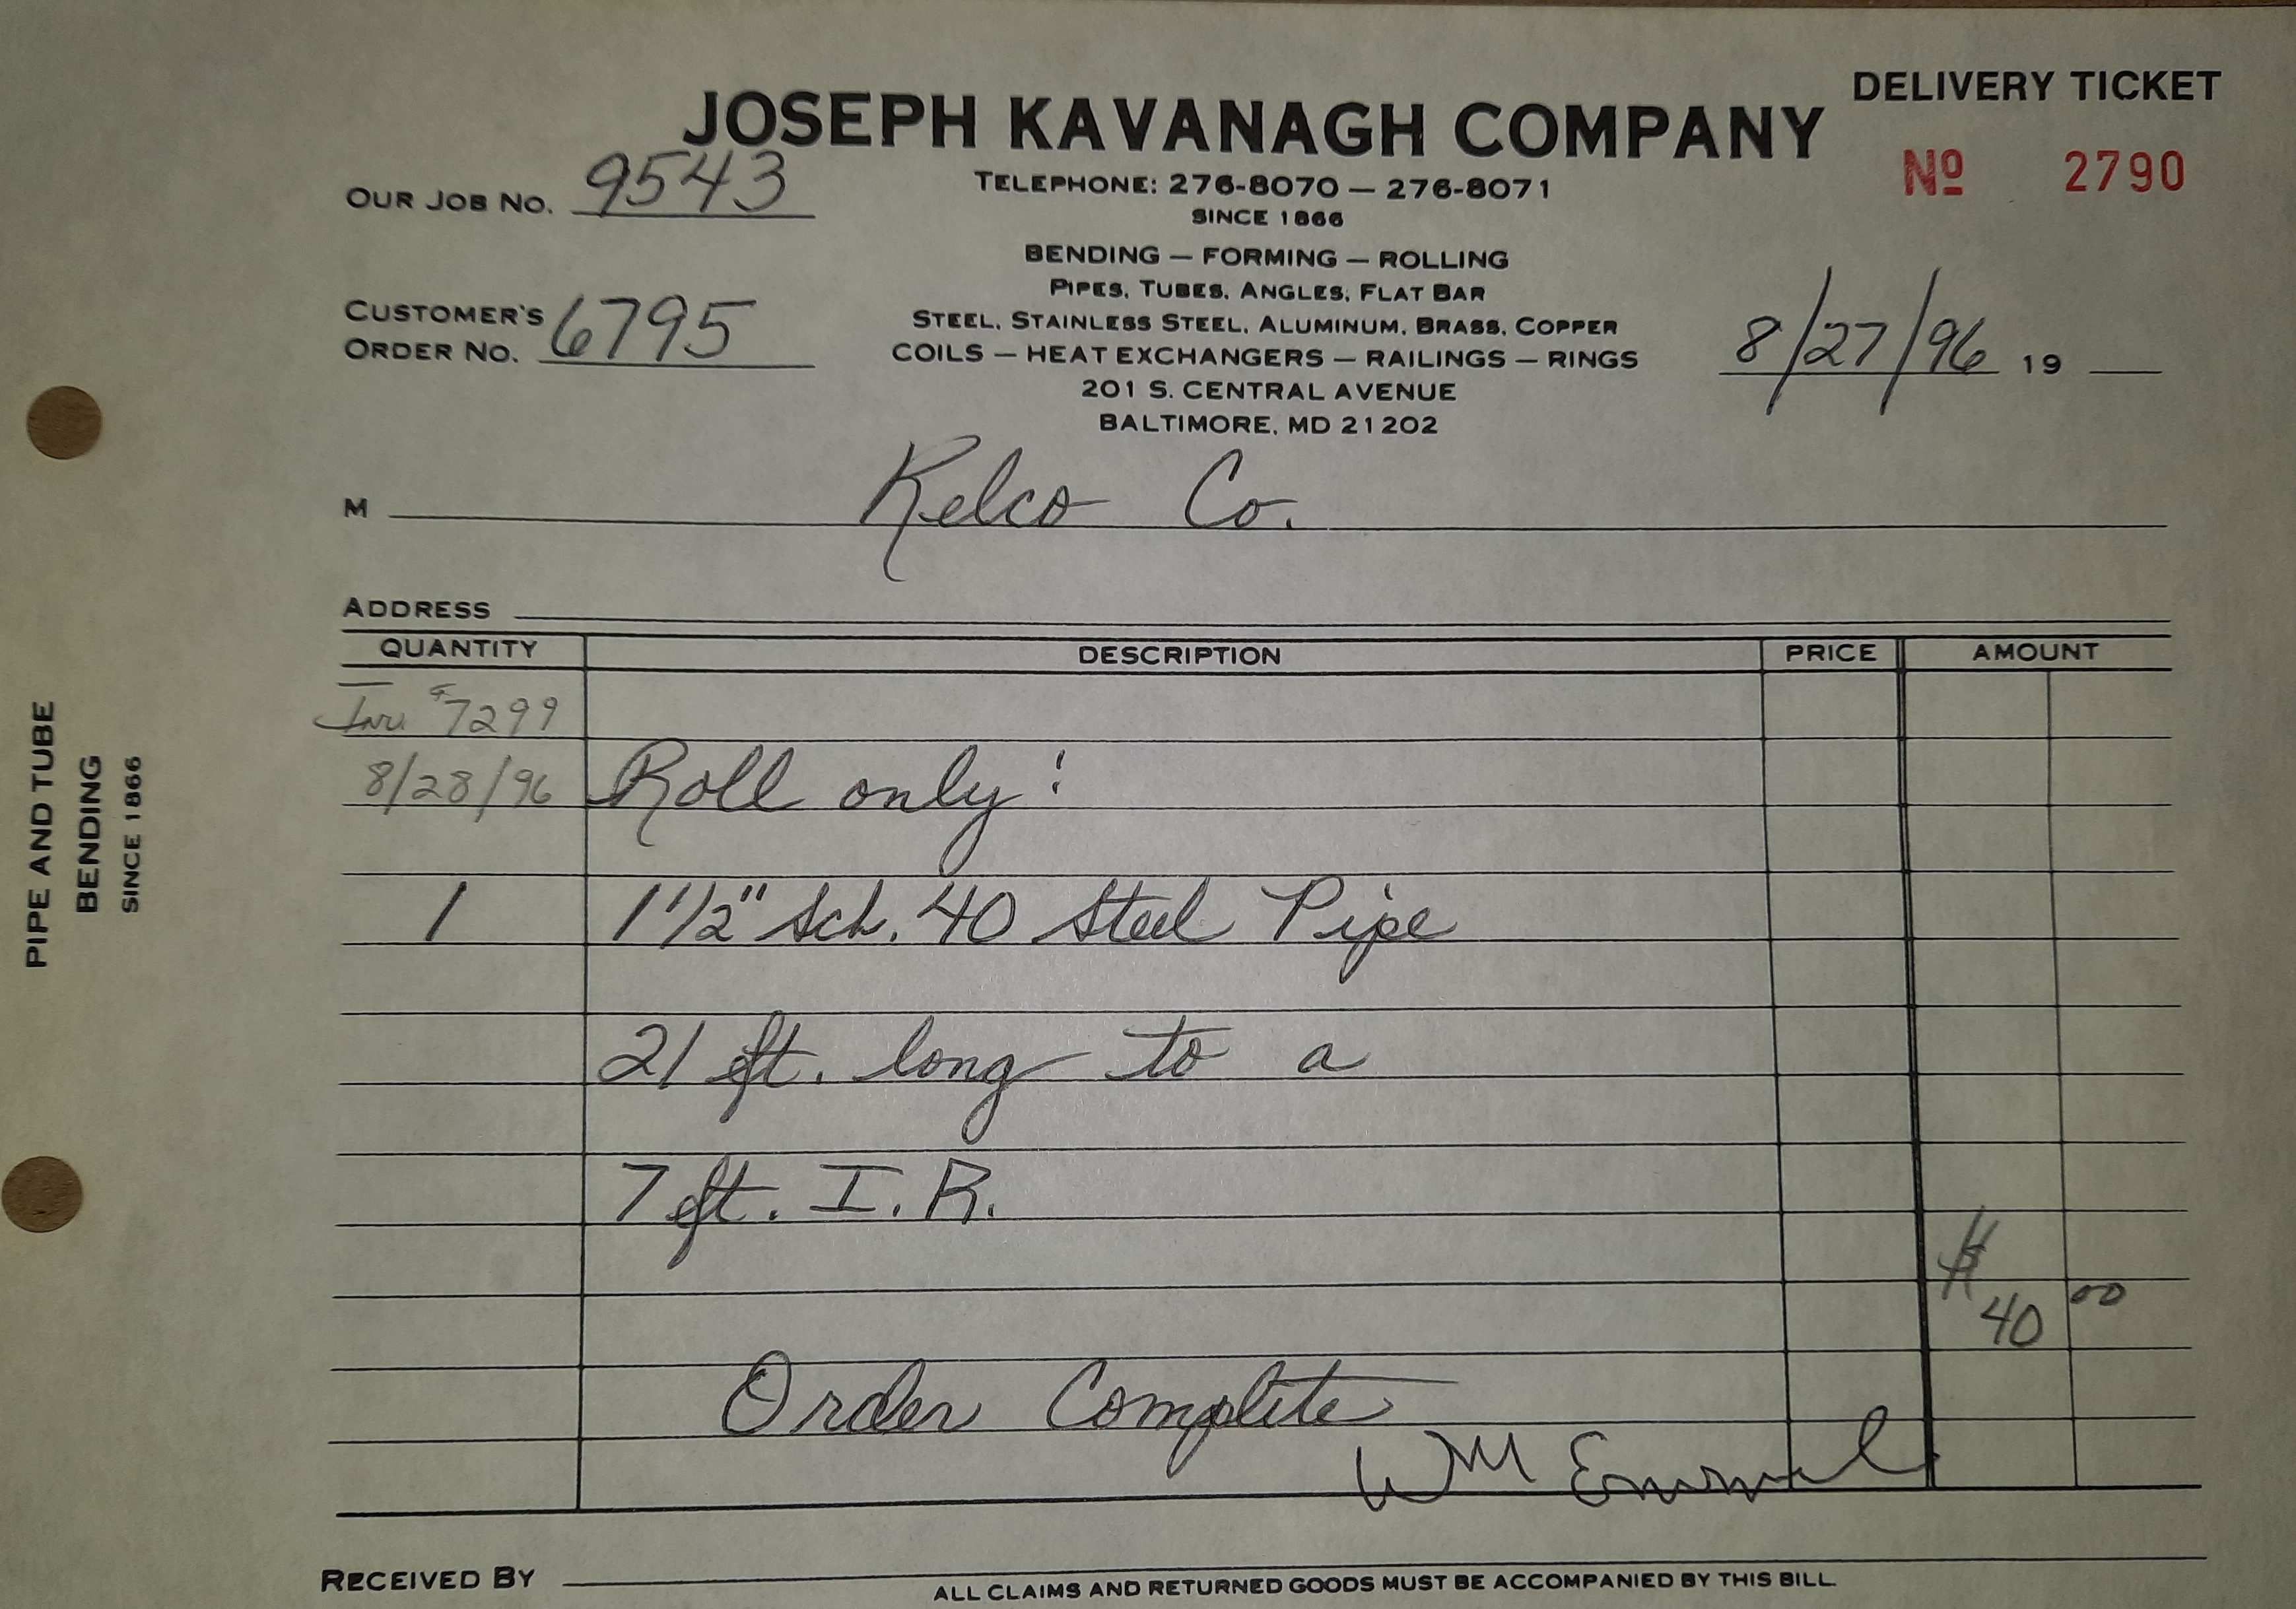 DELIVERY TICKET
JOSEPH KAVANAGH COMPANY
Nº 2790
OUR JOB NO. 9543
TELEPHONE: 276-8070 — 276-8071
SINCE 1866
BENDING — FORMING — ROLLING
PIPES, TUBES, ANGLES, FLAT BAR
CUSTOMER'S
ORDER NO. 6795
STEEL, STAINLESS STEEL, ALUMINUM, BRASS, COPPER
COILS — HEAT EXCHANGERS — RAILINGS — RINGS
8/27/96 19
201 S. CENTRAL AVENUE
BALTIMORE, MD 21202
M Kelco Co.
ADDRESS
QUANTITY DESCRIPTION PRICE AMOUNT
Inv. #7299
8/28/96 Roll only:
1 1 1/2" Sch. 40 Steel Pipe
21 ft. long to a
7 ft. I.R.
$40 00
Order Complete
Wm
RECEIVED BY
ALL CLAIMS AND RETURNED GOODS MUST BE ACCOMPANIED BY THIS BILL
PIPE AND TUBE
BENDING
SINCE 1866